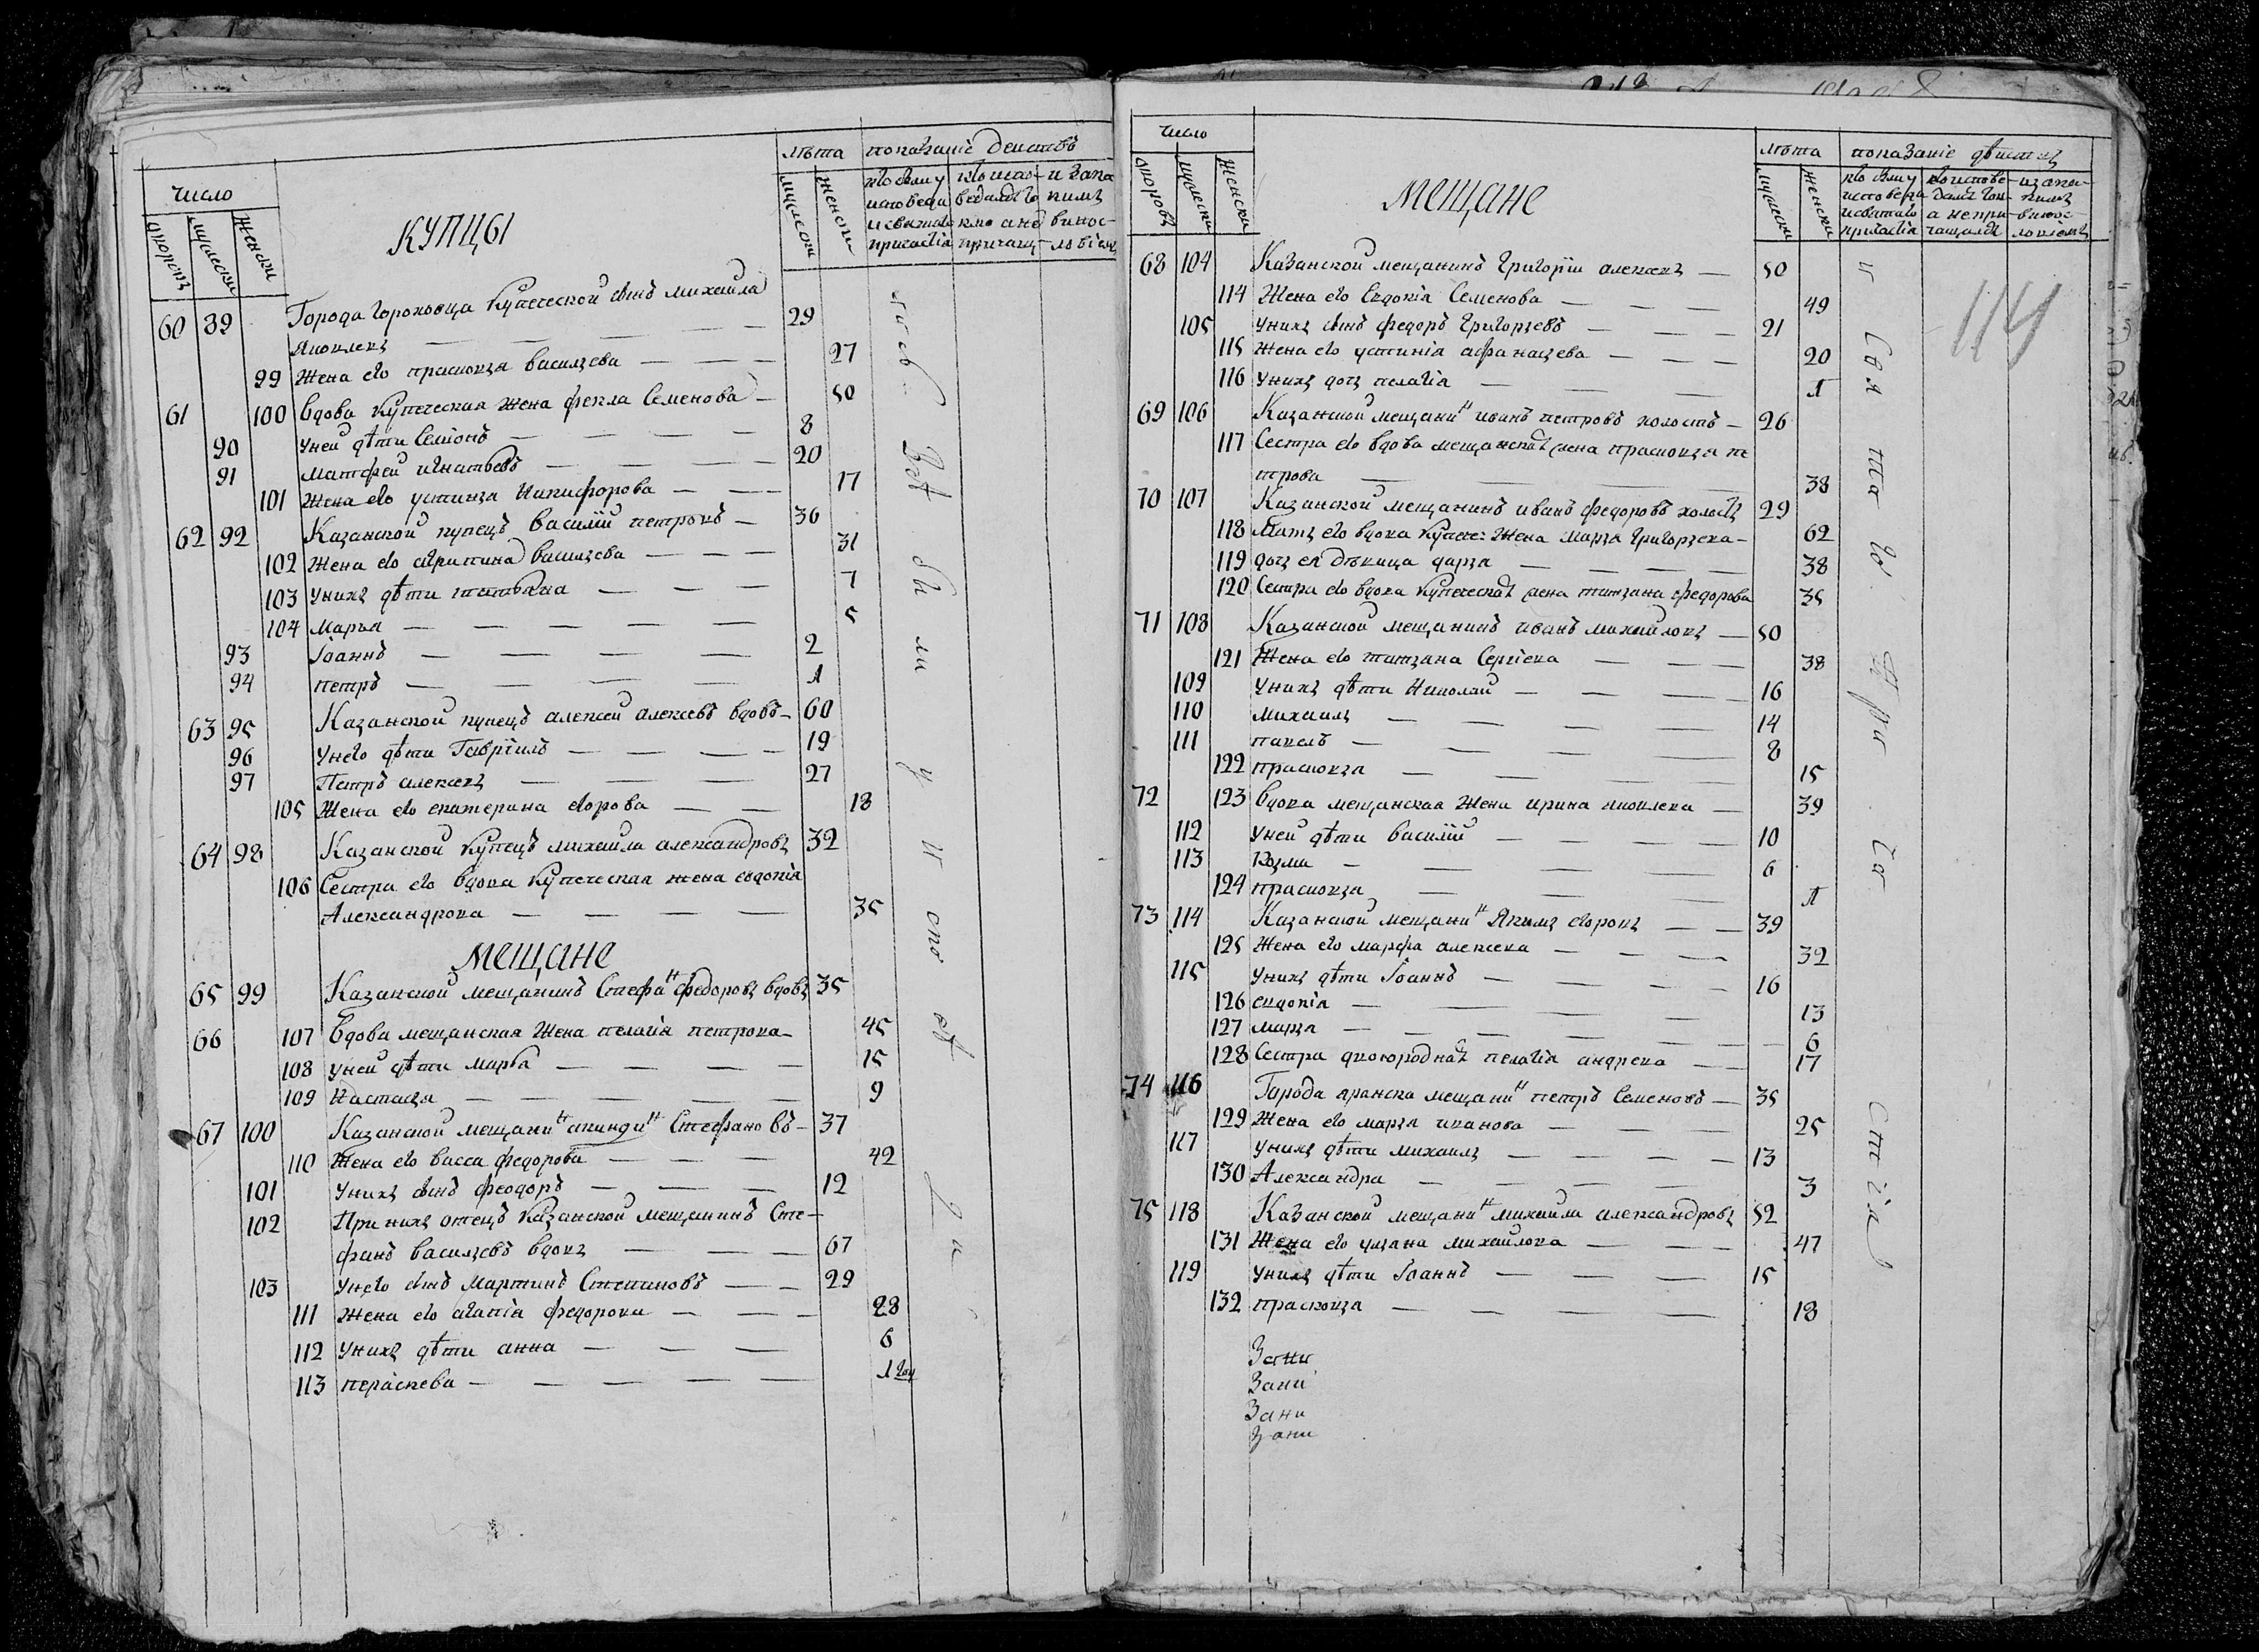 число
дворовъ
мужески
женски
КУПЦЫ
лѣта
мужески
женски
показаніе действъ
60 89 Города Гороховца купеческой сынъ михаила
Яковлевъ — — — 29
99 Жена его прасковья васильева — — — 27
61 100 Вдова купеческая жена фекла Семенова — 50
90 Уней дѣти Семіонъ — — — — 8
91 Матфеи игнатьевъ — — — — 20
101 Жена его устинья Никифорова — — — 17
62 92 Казанской купецъ василій петровъ — 36
102 Жена его агрипина васильева — — — 31
103 Унихъ дѣти татьяна — — — 7
104 Марья — — — — — 5
93 Іоаннъ — — — — 2
94 петръ — — — — 1
63 95 Казанской купецъ алексеи алексевъ вдовъ — 60
96 Унего дѣти Гаврїилъ — — — — 19
97 Петръ алексевъ — — — 27
105 Жена его екатерина егорова — — 18
64 98 Казанской купецъ михаила александровъ 32
106 Сестра его вдова купеческая жена евдокія
Александрова — — — — 35
МЕЩАНЕ
65 99 Казанской мещанинъ Стефанъ федоровъ вдовъ 35
66 107 Вдова мещанская жена пелагія петрова — 45
108 уней дѣти марья — — — — 15
109 Настасья — — — — — 9
67 100 Казанской мещанин акиндин Стефановъ — 37
110 Жена его васса федорова — — — 42
101 Унихъ сынъ феодоръ — — — 12
102 При нихъ отецъ казанской мещанинъ Сте-
фанъ васильевъ вдовъ — — — 67
103 Унего сынъ мартинъ Степановъ — — 29
111 Жена его агапія федорова — — — 28
112 Унихъ дѣти анна — — — 6
113 параскева — — — — — — 1 год
число
дворовъ
мужески
женски
МЕЩАНЕ
лѣта
мужески
женски
показаніе дѣиствъ
114
68 104 Казанской мещанинъ Григорїи алексевъ — 50
114 Жена его Евдокія Семенова — — — 49
105 Унихъ сынъ федоръ Григорьевъ — — — 21
115 Жена его устинія афанасьева — — — 20
116 Унихъ дочь пелагія — — — 1
69 106 Казанской мещанин иванъ петровъ холостъ — 26
117 Сестра его вдова мещанская жена прасковья пе
трова — — — — 38
70 107 Казанской мещанинъ иванъ федоровъ холостъ 29
118 Мать его вдова купече: жена марья Григорьева — 62
119 дочь ея дѣвица дарья — — — — 38
120 Сестра его вдова купеческая жена татьяна федорова 35
71 108 Казанской мещанинъ иванъ михайловъ — 50
121 Жена его татьяна Сергіева — — — 38
109 Унихъ дѣти Николай — — — 16
110 михаилъ — — — — 14
111 павелъ — — — — 8
122 прасковья — — — — 15
72 123 Вдова мещанская жена ирина яковлева — 39
112 Уней дѣти василій — — — — 10
113 Козма — — — — 6
124 прасковья — — — — 1
73 114 Казанской мещанин Якимъ егоровъ — — 39
125 Жена его марфа алексева — — — — 32
115 Унихъ дѣти Іоаннъ — — — — 16
126 евдокія — — — — 13
127 марья — — — — — 6
128 Сестра двоюродная пелагія андрева — — 17
74 116 Города яранска мещанин петръ Семеновъ — 35
129 Жена его марья иванова — — — 25
117 Унихъ дѣти михаилъ — — — — 13
130 Александра — — — — 3
75 118 Казанской мещанин михаила александровъ 52
131 Жена его ульяна михайлова — — — 47
119 Унихъ дѣти Іоаннъ — — — 15
132 прасковья — — — — — 18
Зани
Зани
Зани
Зани